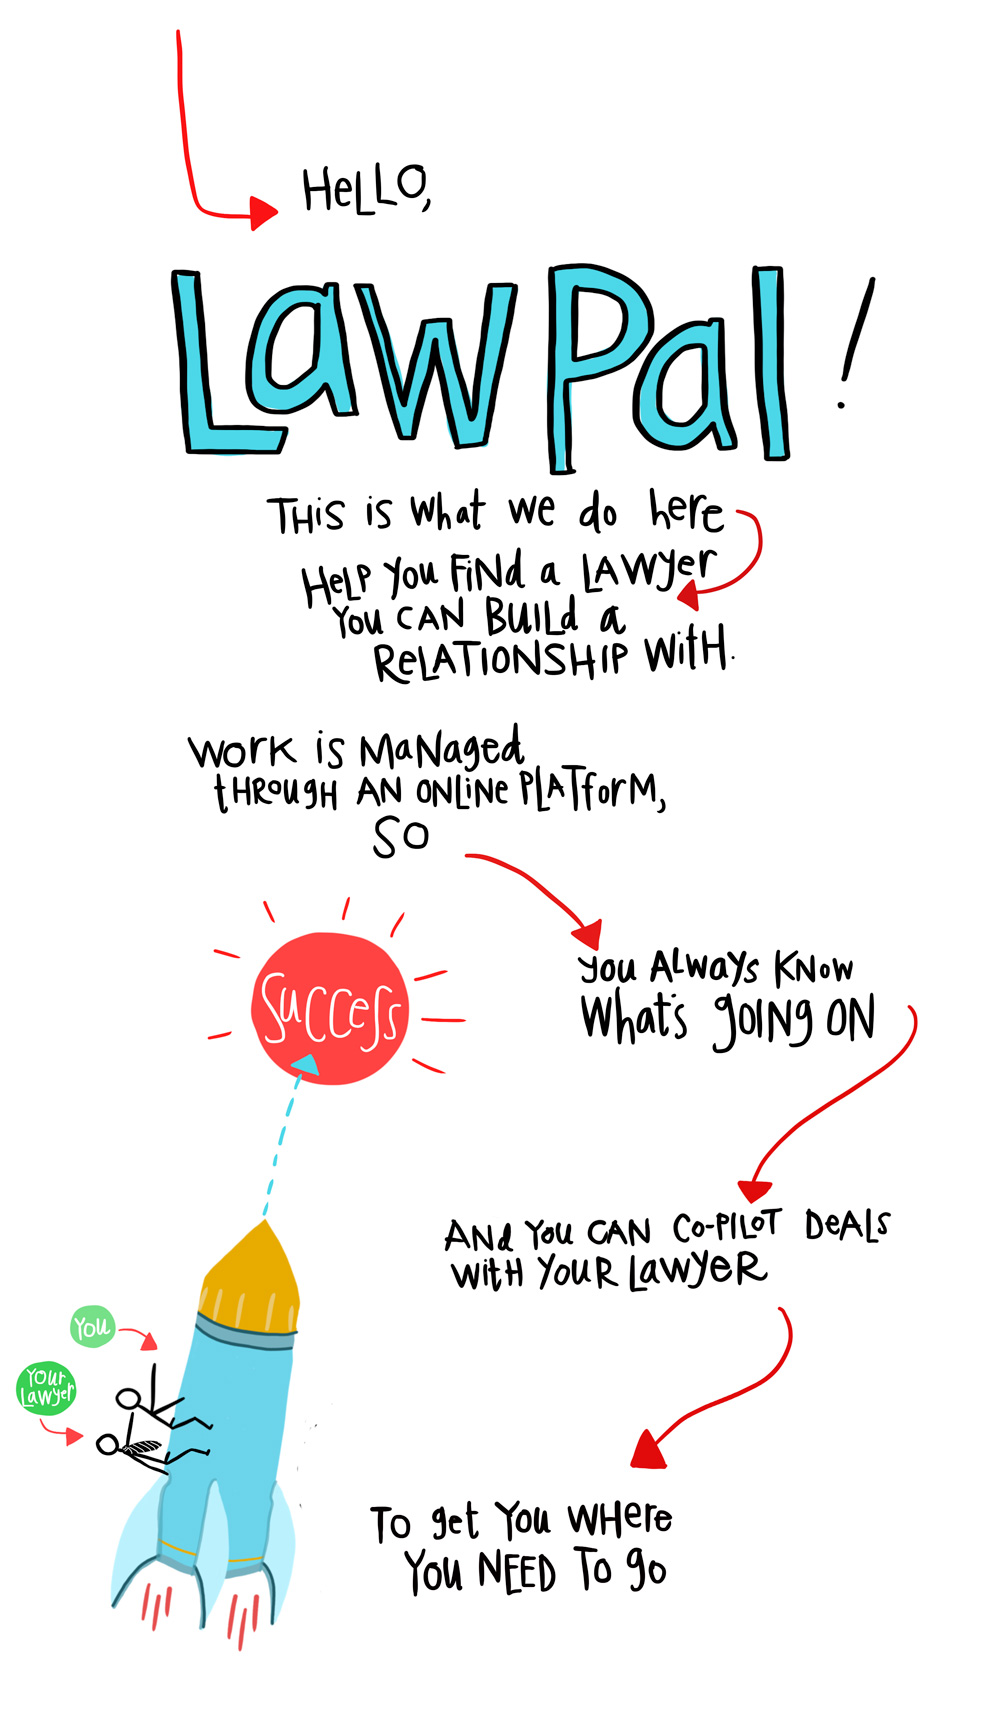 HeLLO,
LawPal!
THis is what we do here
HeLP you FiNd a LAWyer
You CAN BUILd a
ReLATIONSHIP WitH.
WORK is MaNaged
tHRougH AN ONLiNe PLATforM,
SO
Success
you ALways KNow
What's gOINg ON
ANd You CAN CO-PILoT DeALs
WitH YouR LawyeR
You
Your
Lawyer
To get You WHere
You NEED To go